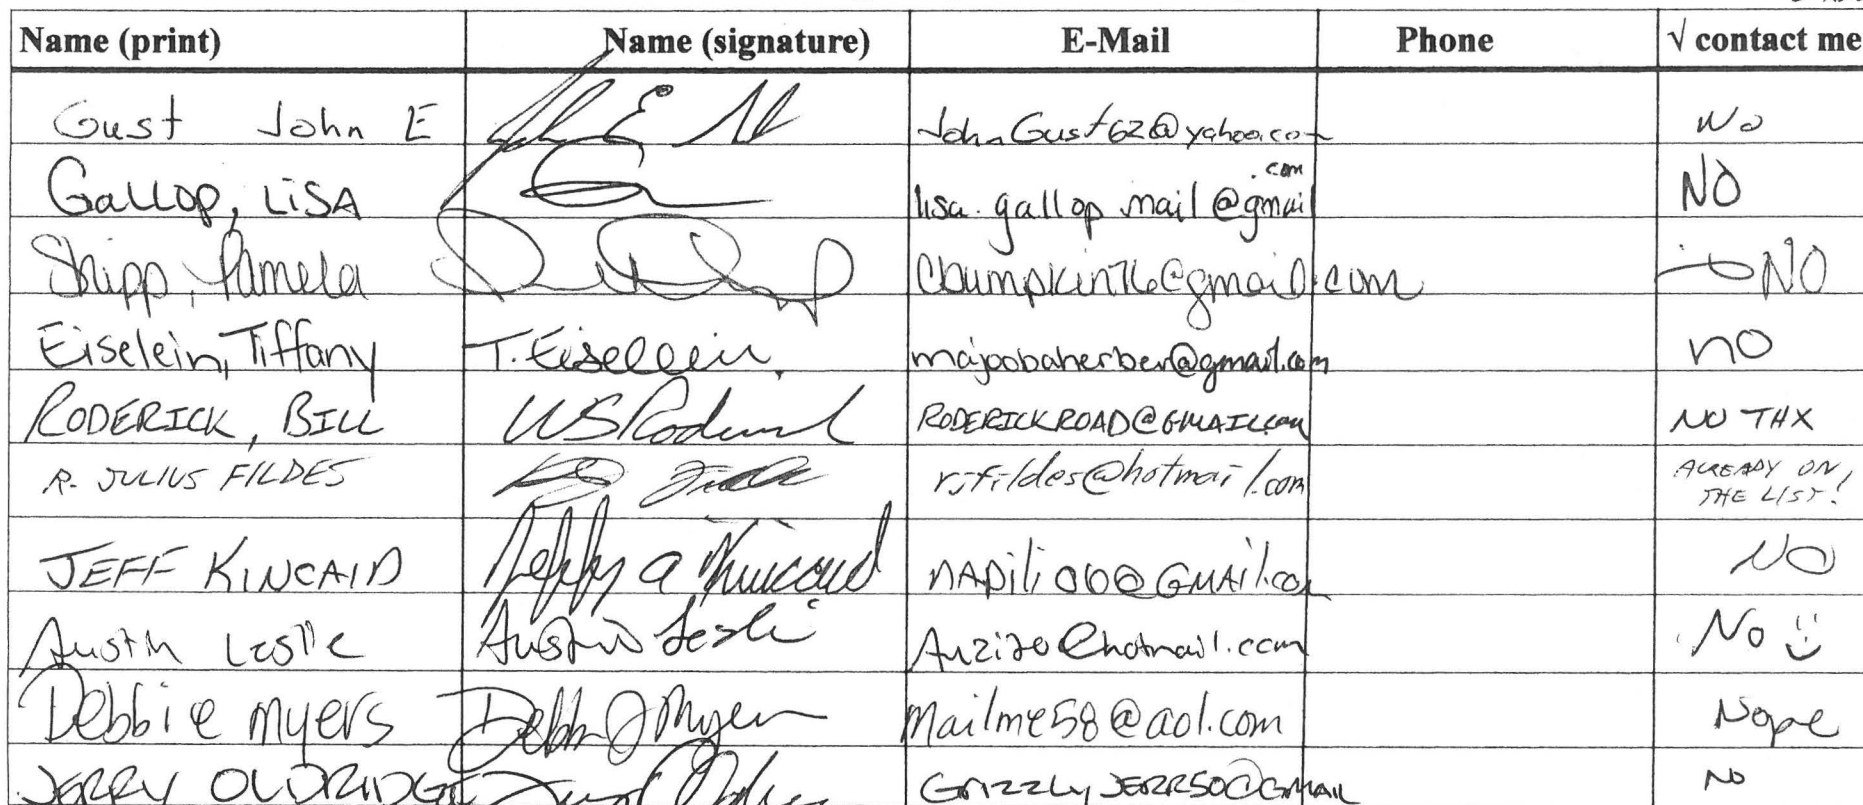 Name (print) Name (signature) E-Mail Phone √ contact me
Gust John E JohnGust62@yahoo.com No
Gallop, LiSA lisa.gallop.mail@gmail .com NO
Shipp, Pamela cbumpkin76@gmail.com NO
Eiselein, Tiffany T. Eiselein majoobaherber@gmail.com no
RODERICK, BILL WS Roderick RODERICKROAD@GMAIL.com NO THX
R. JULIUS FILDES rjfildes@hotmail.com ALREADY ON
THE LIST!
JEFF KINCAID Jeffry a Kincaid NAPili06@GMAil.com NO
Austin Leslie Austin Leslie Anzi20@hotmail.com No
Debbie Myers Debb J Myers Mailme58@aol.com Nope
JERRY OLDRIDGE GRIZZLYJERR50@GMAIL NO